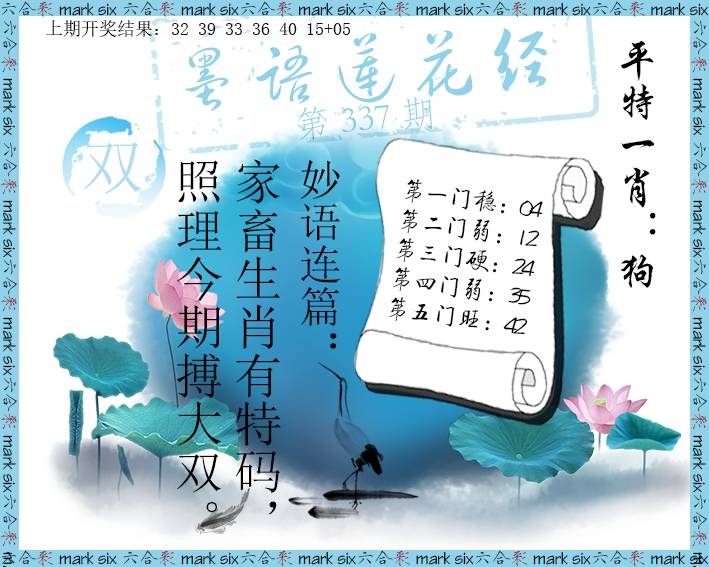 上期开奖结果：32 39 33 36 40 15+05
墨语莲花经
第 337 期
双
平特一肖：狗
妙语连篇：
家畜生肖有特码，
照理今期搏大双。
第一门稳：04
第二门弱：12
第三门硬：24
第四门弱：35
第五门旺：42
六合彩 mark six 六合彩 mark six 六合彩 mark six 六合彩 mark six 六合彩 mark six